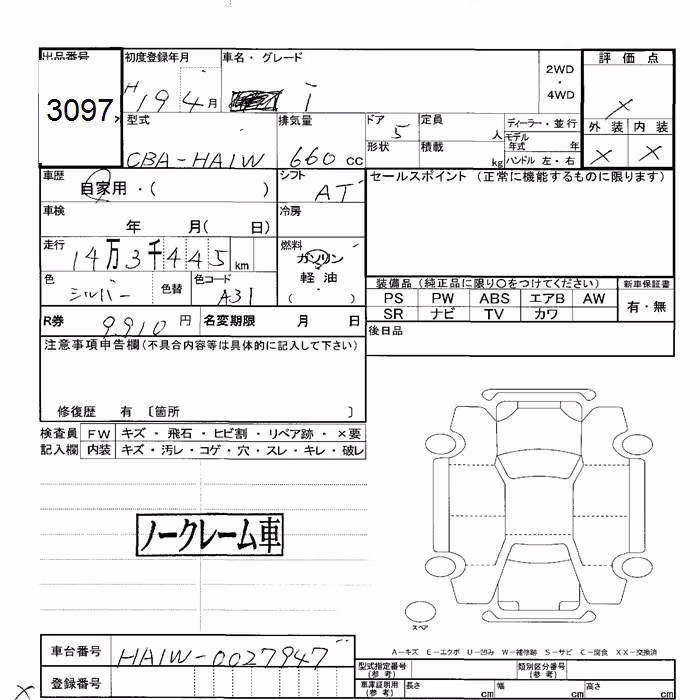 出品番号 初度登録年月 車名・グレード 2WD・4WD 評価点
3097 H19 4月 i ×
型式 排気量 ドア 定員 ディーラー・並行 外装 内装
CBA-HA1W 660 cc 5 人 モデル年式 年 × ×
形状 積載 kg ハンドル 左・右
車歴 自家用・( ) シフト AT セールスポイント (正常に機能するものに限ります)
車検 年 月( 日) 冷房
走行 14万3千445km 燃料 ガソリン
軽油
( )
色 シルバー 色替 色コード A31
装備品 (純正品に限り○をつけてください) 新車保証書
PS PW ABS エアB AW 有・無
SR ナビ TV カワ
R券 9.910 円 名変期限 月 日 後日品
注意事項申告欄(不具合内容等は具体的に記入して下さい)
修復歴 有 〔箇所 〕
検査員 FW キズ・飛石・ヒビ割・リペア跡・×要
記入欄 内装 キズ・汚レ・コゲ・穴・スレ・キレ・破レ
ノークレーム車
スペア
A-キズ E-エクボ U-凹み W-補修跡 S-サビ C-腐食 XX-交換済
車台番号 HA1W-0027947
登録番号
型式指定番号(参考) 類別区分番号(参考)
車庫証明用(参考) 長さ cm 幅 cm 高さ cm
×